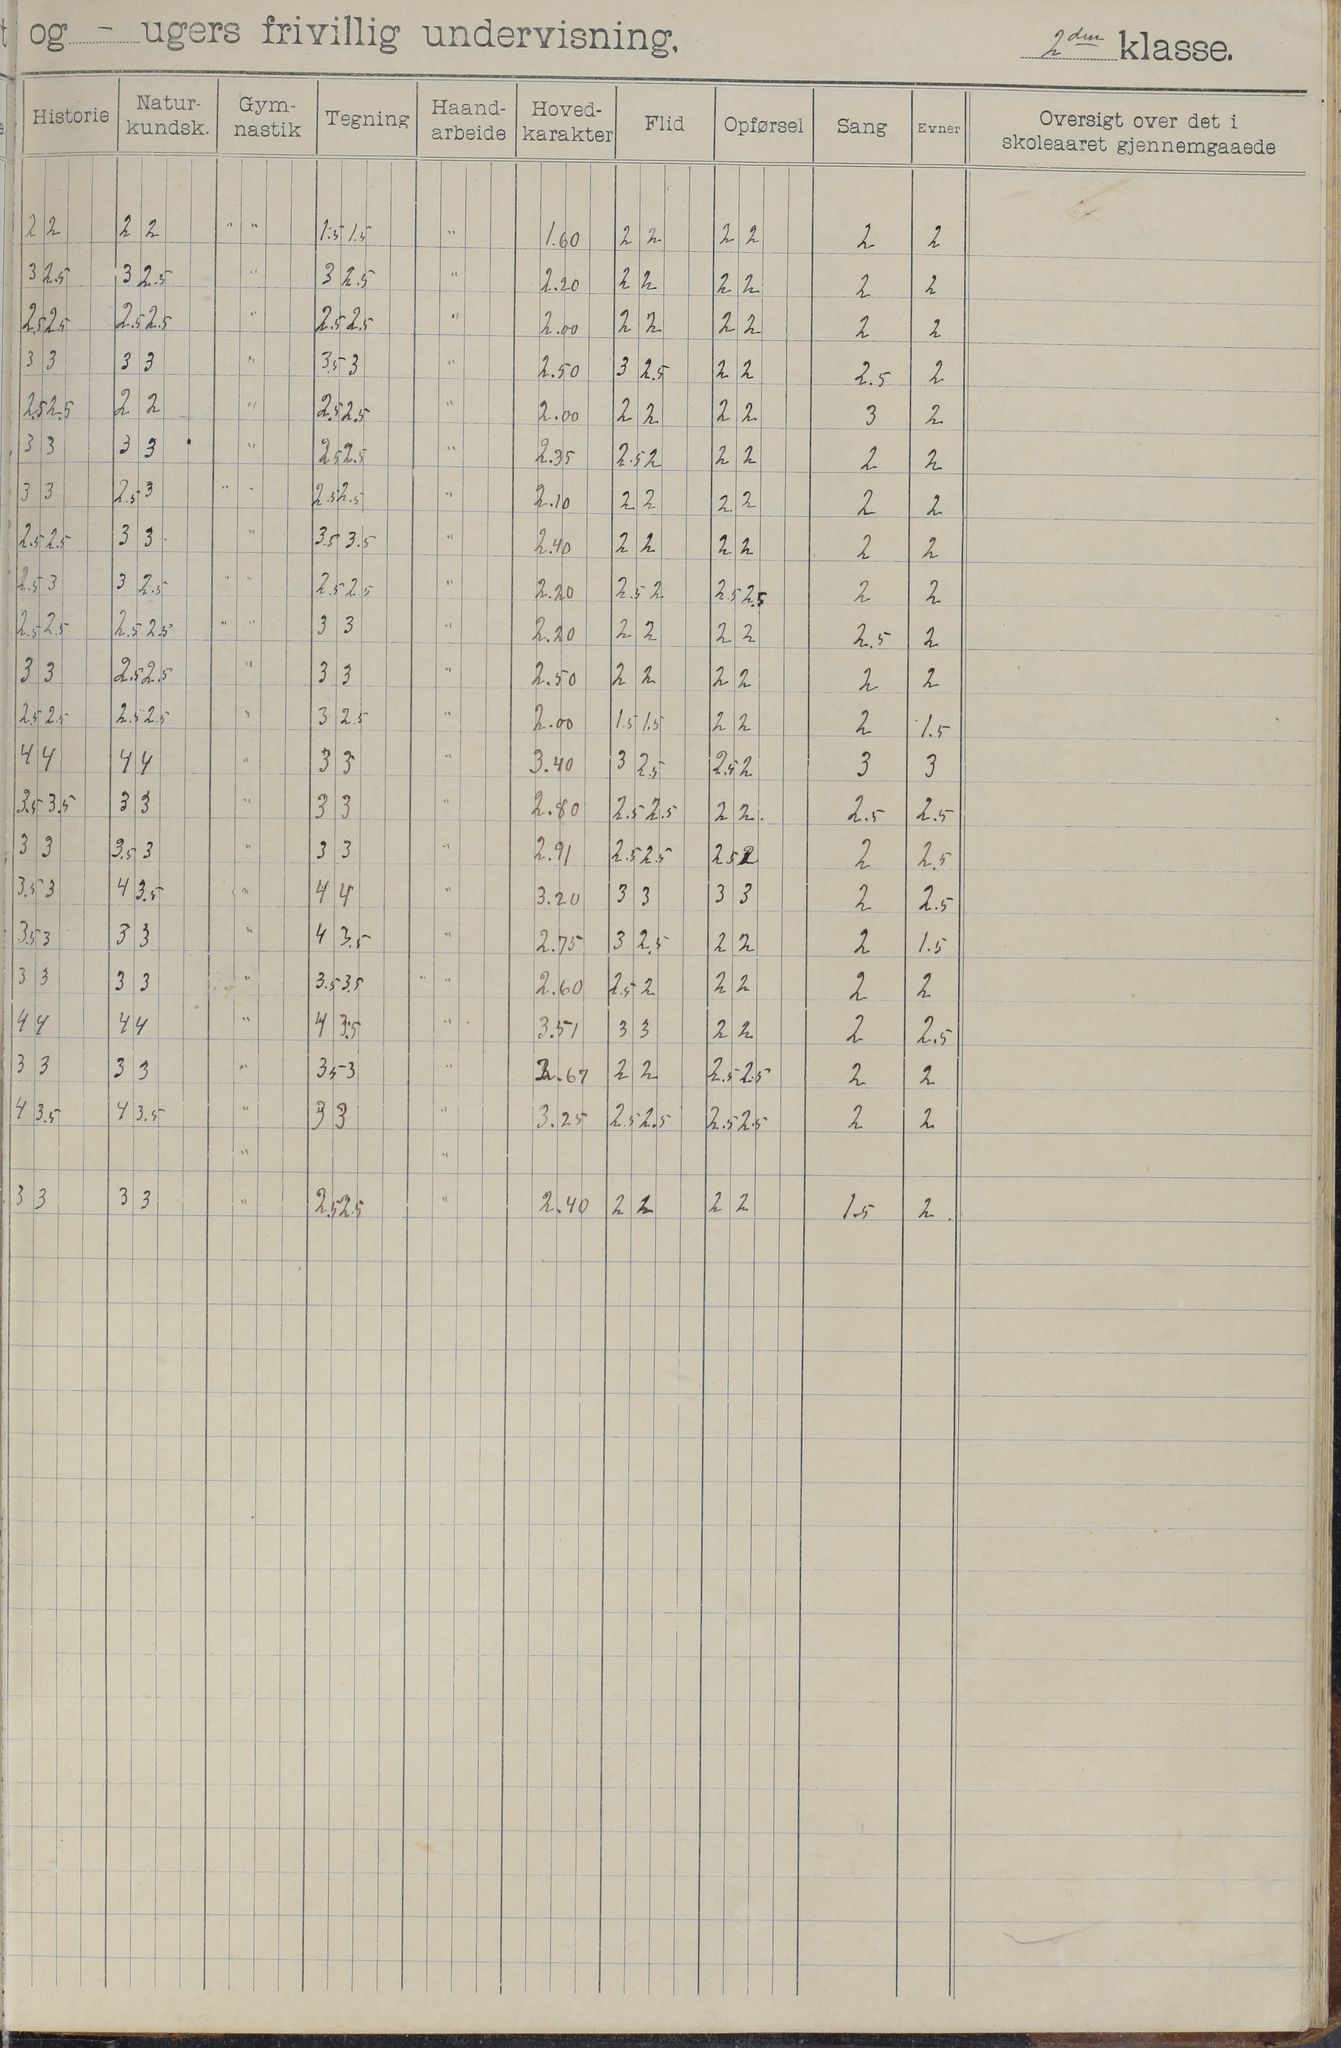 og - ugers frivillig undervisning, 2den klasse.
Historie Natur-kundsk. Gym-nastik Tegning Haand-arbeide Hoved-karakter Flid Opførsel Sang Evner Oversigt over det i skoleaaret gjennemgaaede
2 2 2 2 " " 1.5 1.5 " 1.60 2 2 2 2 2 2
3 2.5 3 2.5 " 3 2.5 " 2.20 2 2 2 2 2 2
2.5 2.5 2.5 2.5 " 2.5 2.5 " 2.00 2 2 2 2 2 2
3 3 3 3 " 3.5 3 " 2.50 3 2.5 2 2 2.5 2
2.5 2.5 2 2 " 2.5 2.5 " 2.00 2 2 2 2 3 2
3 3 3 3 " 2.5 2.5 " 2.35 2.5 2 2 2 2 2
3 3 2.5 3 " " 2.5 2.5 " 2.10 2 2 2 2 2 2
2.5 2.5 3 3 " 3.5 3.5 " 2.40 2 2 2 2 2 2
2.5 3 3 2.5 " " 2.5 2.5 " 2.20 2.5 2 2.5 2.5 2 2
2.5 2.5 2.5 2.5 " " 3 3 " 2.20 2 2 2 2 2.5 2
3 3 2.5 2.5 " 3 3 " 2.50 2 2 2 2 2 2
2.5 2.5 2.5 2.5 " 3 2.5 " 2.00 1.5 1.5 2 2 2 1.5
4 4 4 4 " 3 3 " 3.40 3 2.5 2.5 2 3 3
3.5 3.5 3 3 " 3 3 " 2.80 2.5 2.5 2 2. 2.5 2.5
3 3 3.5 3 " 3 3 " 2.91 2.5 2.5 2.5 2 2 2.5
3.5 3 4 3.5 " 4 4 " 3.20 3 3 3 3 2 2.5
3.5 3 3 3 " 4 3.5 " 2.75 3 2.5 2 2 2 1.5
3 3 3 3 " 3.5 3.5 " " 2.60 2.5 2 2 2 2 2
4 4 4 4 " 4 3.5 " 3.51 3 3 2 2 2 2.5
3 3 3 3 " 3.5 3 " 2.67 2 2 2.5 2.5 2 2
4 3.5 4 3.5 " 3 3 " 3.25 2.5 2.5 2.5 2.5 2 2
" "
3 3 3 3 " 2.5 2.5 " 2.40 2 2 2 2 1.5 2